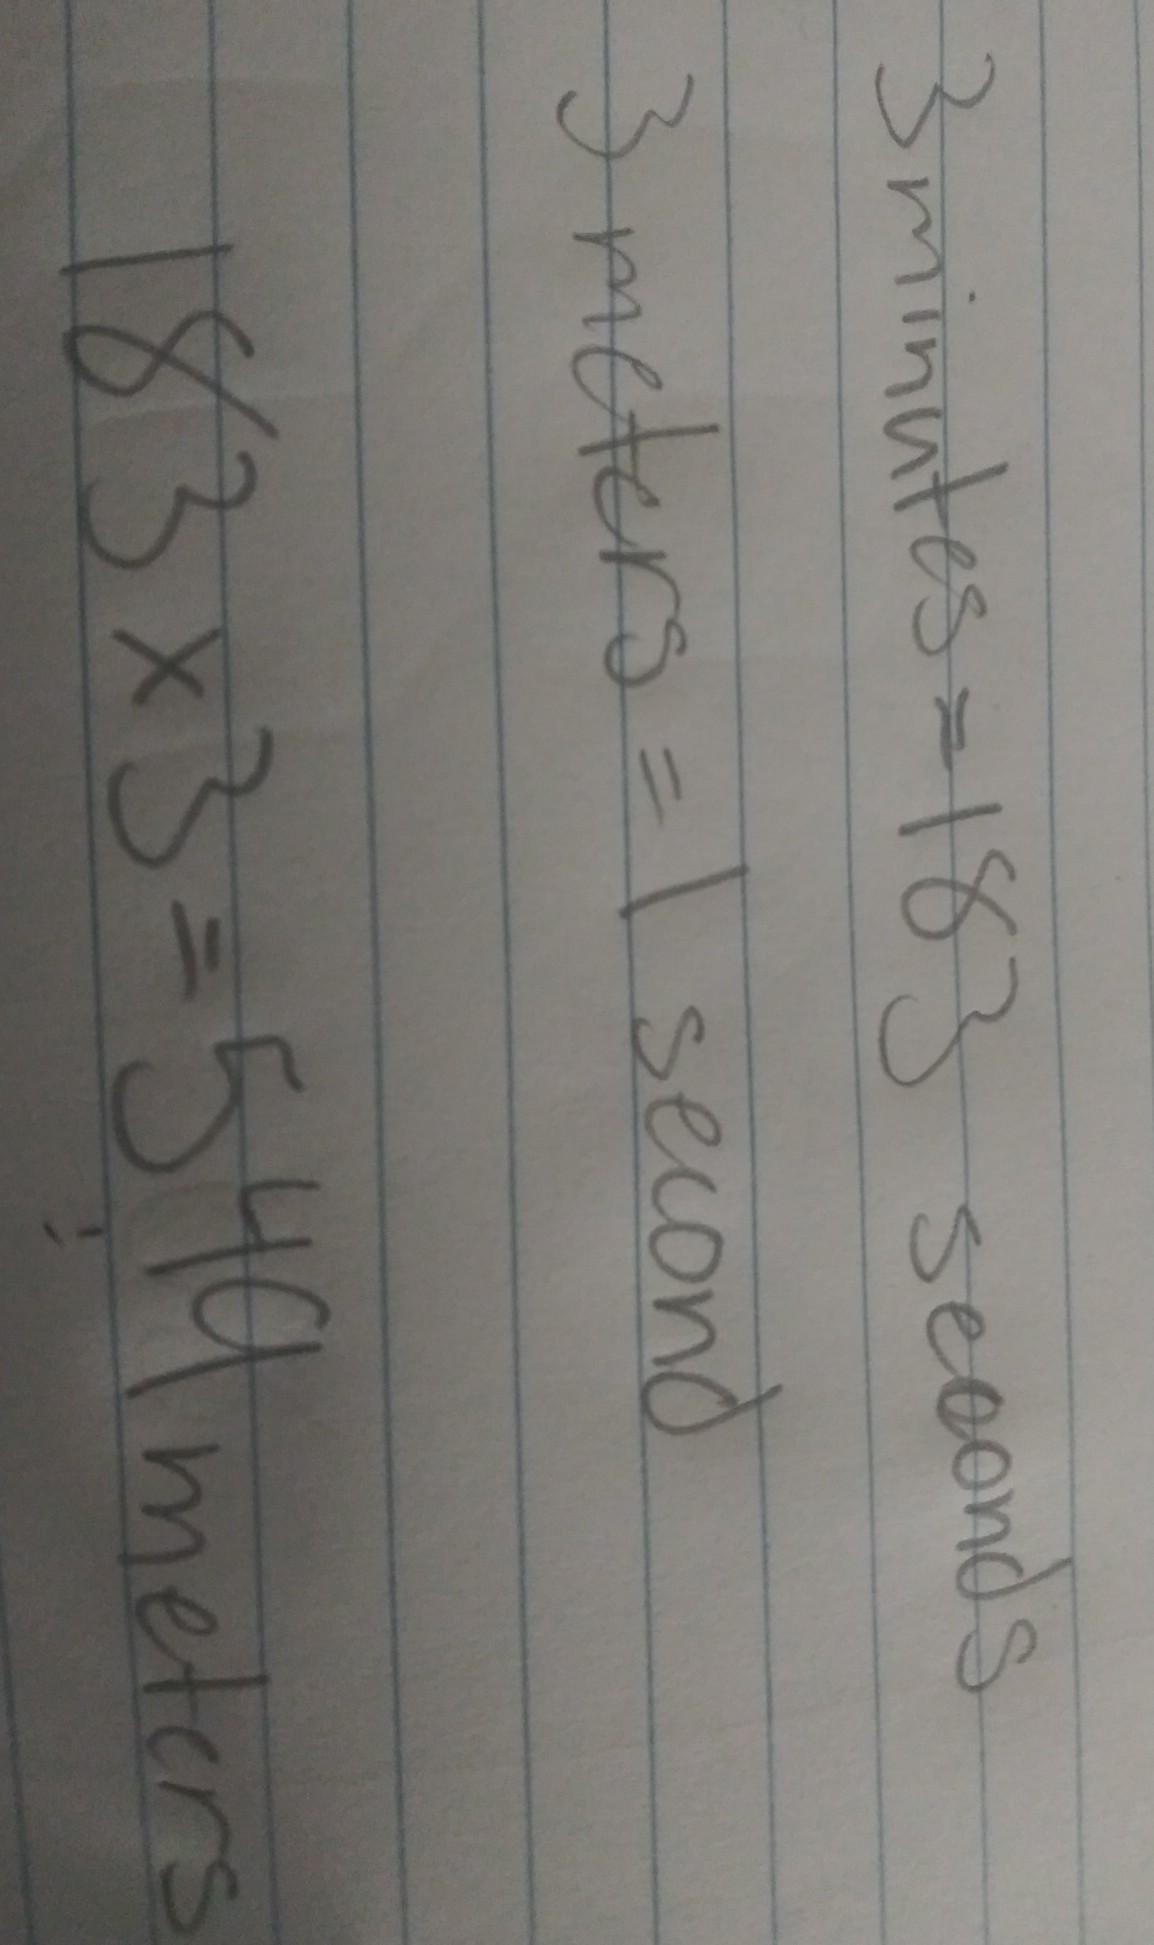 3 minutes = 183 seconds
3 meters = 1 second
183 x 3 = 549 meters